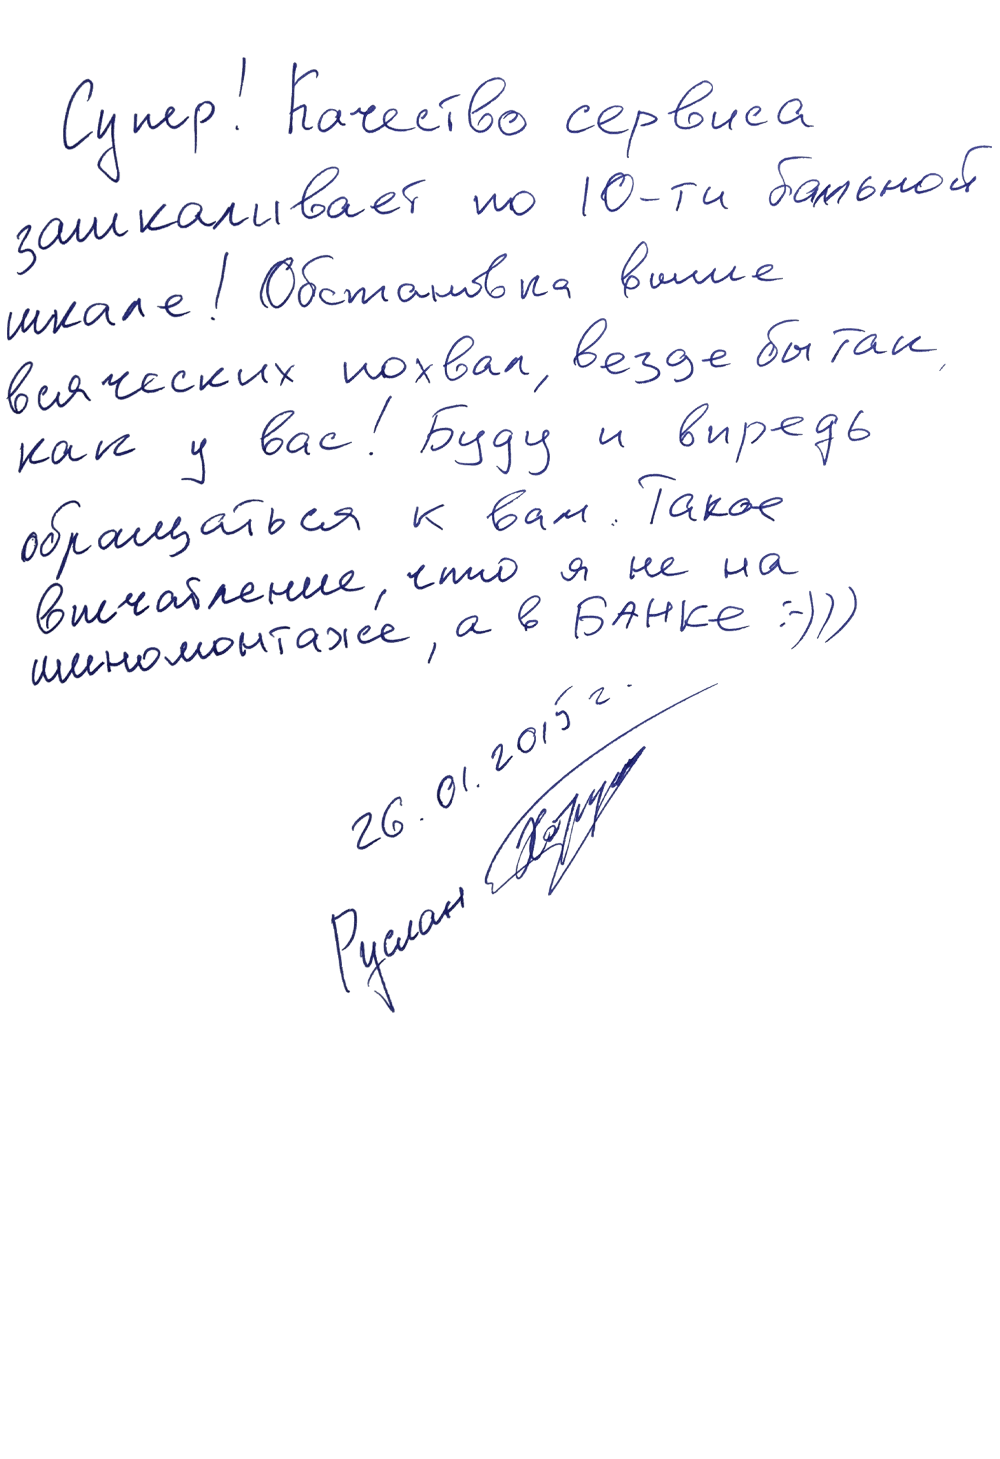 Супер! Качество сервиса
зашкаливает по 10-ти бальной
шкале! Обстановка выше
всяческих похвал, везде бы так,
как у вас! Буду и впредь
обращаться к вам. Такое
впечатление, что я не на
шиномонтаже, а в БАНКЕ :-)))
26.01.2015 г.
Руслан